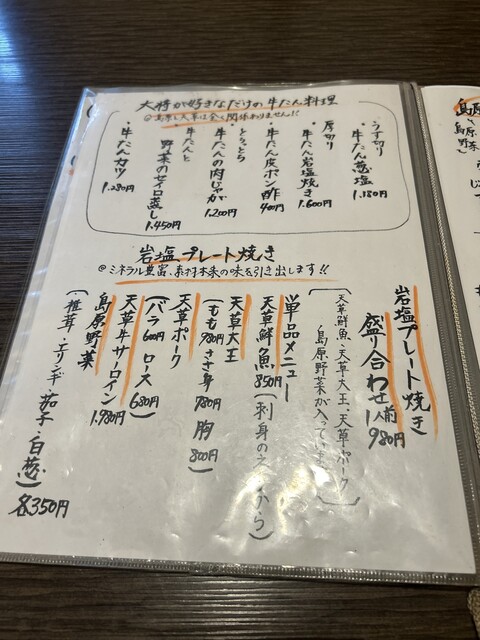 大将が好きなだけの牛たん料理
@島原と天草は全く関係ありません!!
うす切り
牛たん葱塩 1.180円
厚切り
牛たん岩塩焼き 1.600円
牛たん皮ポン酢 400円
とろとろ
牛たんの肉じゃが 1.200円
牛たんと
野菜のセイロ蒸し 1.450円
牛たんカツ 1.280円
岩塩プレート焼き
@ミネラル豊富、素材本来の味を引き出します!!
岩塩プレート焼き
盛り合わせ 1人前 980円
天草鮮魚、天草大王、天草ポーク
島原野菜が入って
単品メニュー
天草鮮魚 850円 (刺身の から)
天草大王
(もも 780円 ささ身 780円 胸 800円)
天草ポーク
(バラ 600円 ロース 680円)
天草牛サーロイン 1.980円
島原野菜
(椎茸・エリンギ 茄子・白葱) 各350円
島原
島原野菜